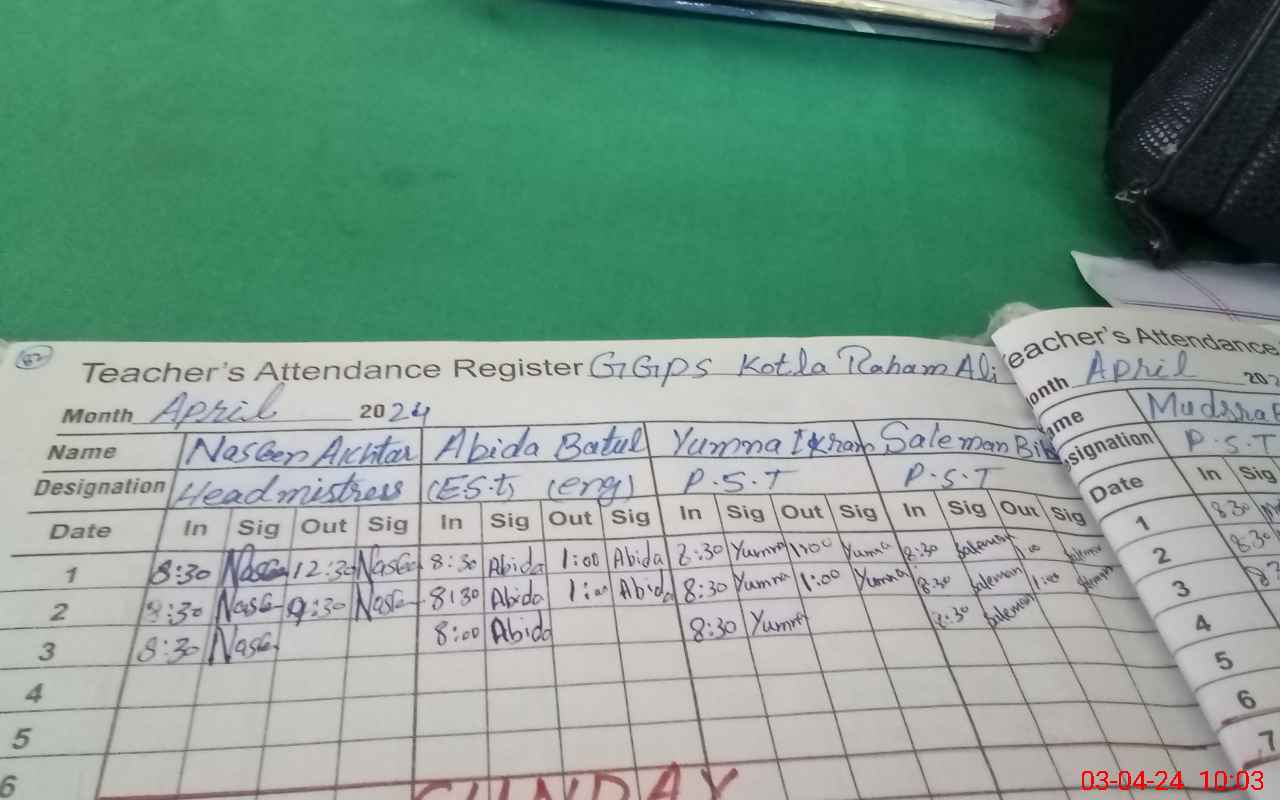 82
Teacher's Attendance Register GGPS Kotla Raham Ali
Month April 2024
Name Naseen Akhtar Abida Batul Yumna Ikram Saleman Bib
Designation Headmistress (ES.t) (eng) P.S.T P.S.T
Date In Sig Out Sig In Sig Out Sig In Sig Out Sig In Sig Out Sig
1 8:30 Nasee 12:30 Nasee 8:30 Abida 1:00 Abida 8:30 Yumna 1:00 Yumna 8:30 Saleman 1:00
2 8:30 Nasee 9:30 Nasee 8:30 Abida 1:00 Abida 8:30 Yumna 1:00 Yumna 8:30 Saleman 1:00
3 8:30 Nasee 8:00 Abida 8:30 Yumna 8:30 Saleman
4
5
6
SUNDAY
eacher's Attendance
onth April 202
ame Mudssa
signation P.S.T
Date In Sig
1 8:30
2 8:30
3
4
5
6
7
03-04-24 10:03